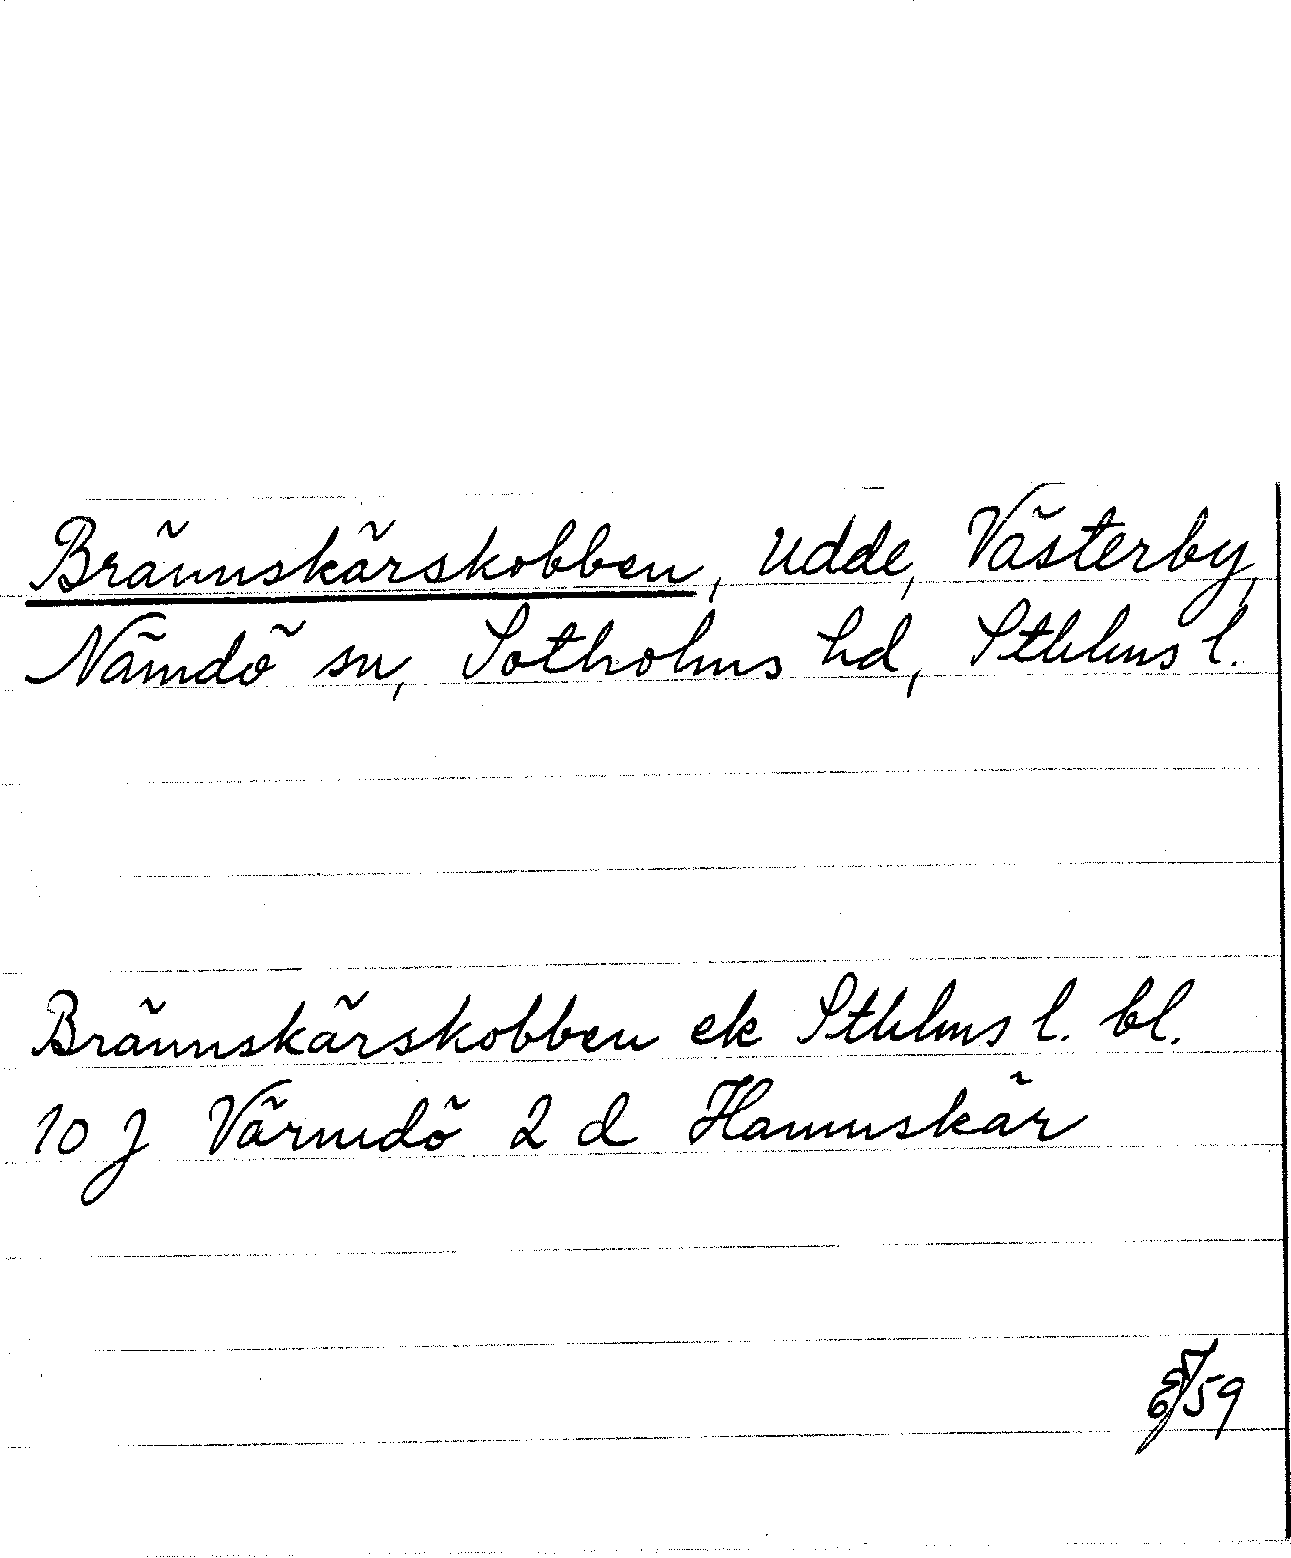 Brännskärskobben, udde, Västerby,
Nämdö sn, Sotholms hd, Sthlms l.
Brännskärskobben ek Sthlms l. bl.
10 J Värmdö 2 d Hamnskär
/59